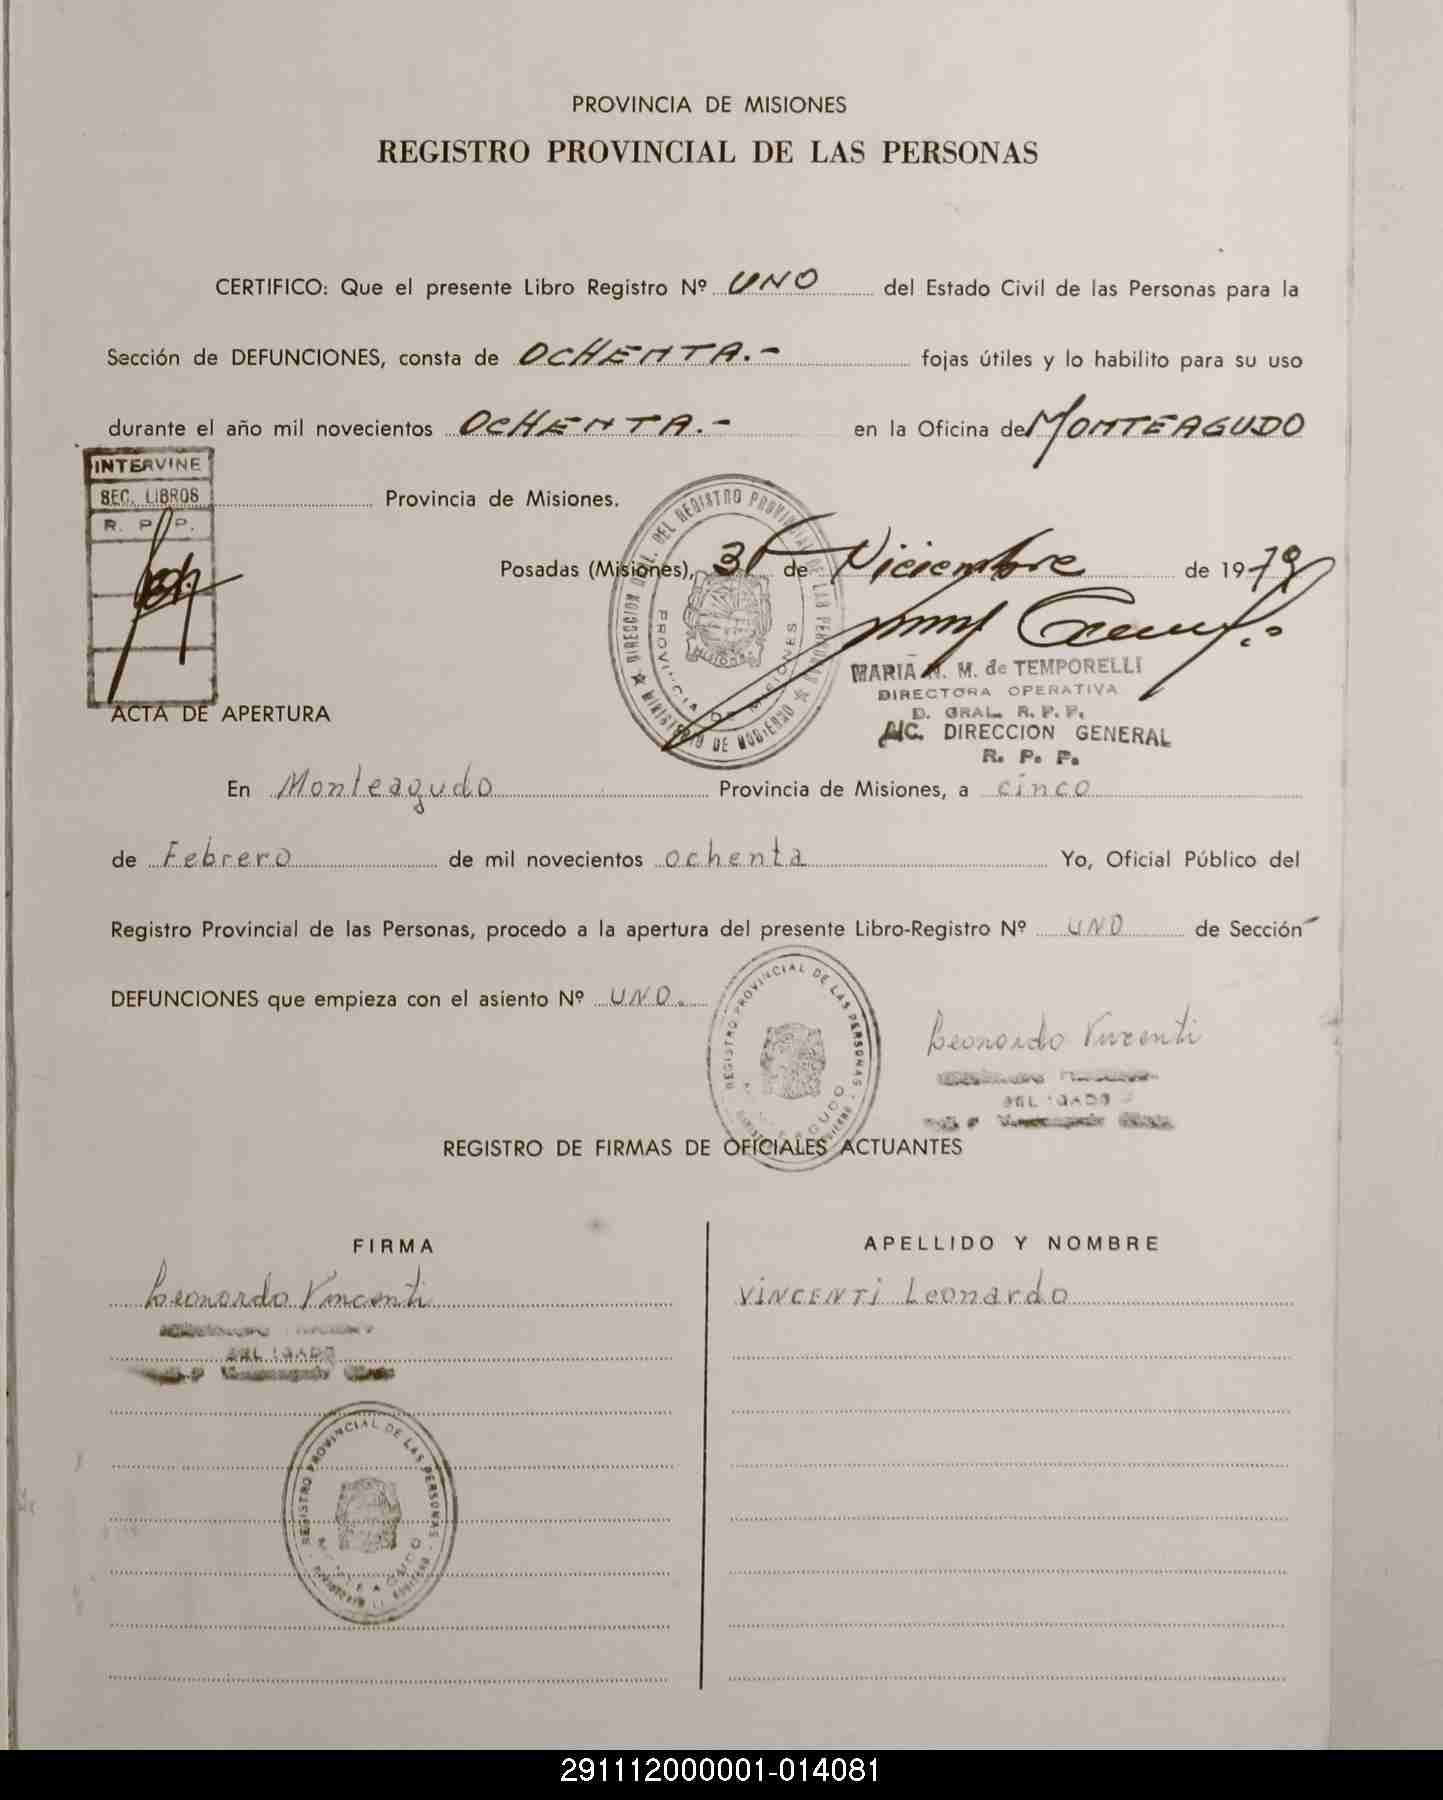 PROVINCIA DE MISIONES
REGISTRO PROVINCIAL DE LAS PERSONAS
CERTIFICO: Que el presente Libro Registro Nº UNO del Estado Civil de las Personas para la
Sección de DEFUNCIONES, consta de OCHENTA.- fojas útiles y lo habilito para su uso
durante el año mil novecientos OCHENTA.- en la Oficina de MONTEAGUDO
INTERVINE
SEC. LIBROS
R. P. P.
Provincia de Misiones.
Posadas (Misiones), 31 de Diciembre de 1979
DIRECCION GRAL. DEL REGISTRO PROVINCIAL DE LAS PERSONAS
MINISTERIO DE GOBIERNO
PROVINCIA DE MISIONES
MISIONES
MARIA N. M. de TEMPORELLI
DIRECTORA OPERATIVA
D. GRAL. R. P. P.
A/C. DIRECCION GENERAL
R. P. P.
ACTA DE APERTURA
En Monteagudo Provincia de Misiones, a cinco
de Febrero de mil novecientos ochenta Yo, Oficial Público del
Registro Provincial de las Personas, procedo a la apertura del presente Libro-Registro Nº UNO de Sección
DEFUNCIONES que empieza con el asiento Nº UNO.
REGISTRO PROVINCIAL DE LAS PERSONAS
Leonardo Vincenti
DELEGADO
REGISTRO DE FIRMAS DE OFICIALES ACTUANTES
FIRMA APELLIDO Y NOMBRE
Leonardo Vincenti VINCENTI Leonardo
DELEGADO
REGISTRO PROVINCIAL DE LAS PERSONAS
291112000001-014081